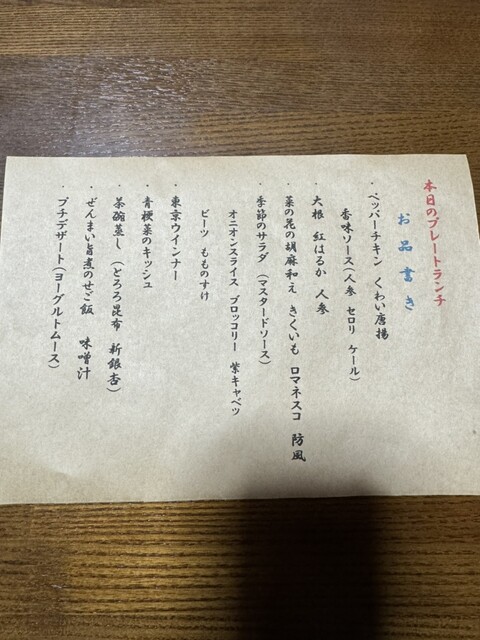 本日のプレートランチ
お品書き
・ペッパーチキン くわい唐揚
香味ソース(人参 セロリ ケール)
大根 紅はるか 人参
・菜の花の胡麻和え きくいも ロマネスコ 防風
・季節のサラダ (マスタードソース)
オニオンスライス ブロッコリー 紫キャベツ
ビーツ もものすけ
・東京ウインナー
・青梗菜のキッシュ
・茶碗蒸し (とろろ昆布 新銀杏)
・ぜんまい旨煮のせご飯 味噌汁
・プチデザート(ヨーグルトムース)